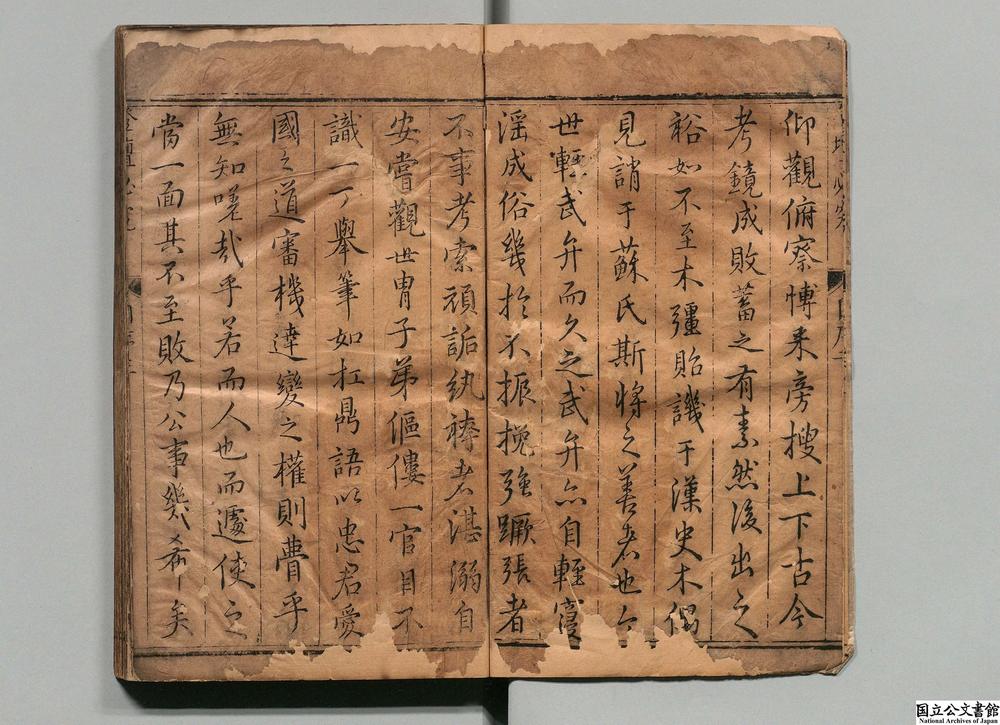 仰觀俯察博采旁搜上下古今
考鏡成敗蓄之有素然後出之
裕如不至木彊貽譏于漢史木偶
見誚于蘇氏斯將之善者也今
世輕武弁而久之武弁亦自輕寖
淫成俗幾於不振挽強蹶張者
不事考索頑詬紈袴者湛溺自
安嘗觀世胄子弟傴僂一官目不
識一丁舉筆如扛鼎語以忠君愛
國之道審機達變之權則瞢乎
無知嗟哉乎若而人也而遽使之
當一面其不至敗乃公事幾希矣
国立公文書館
National Archives of Japan